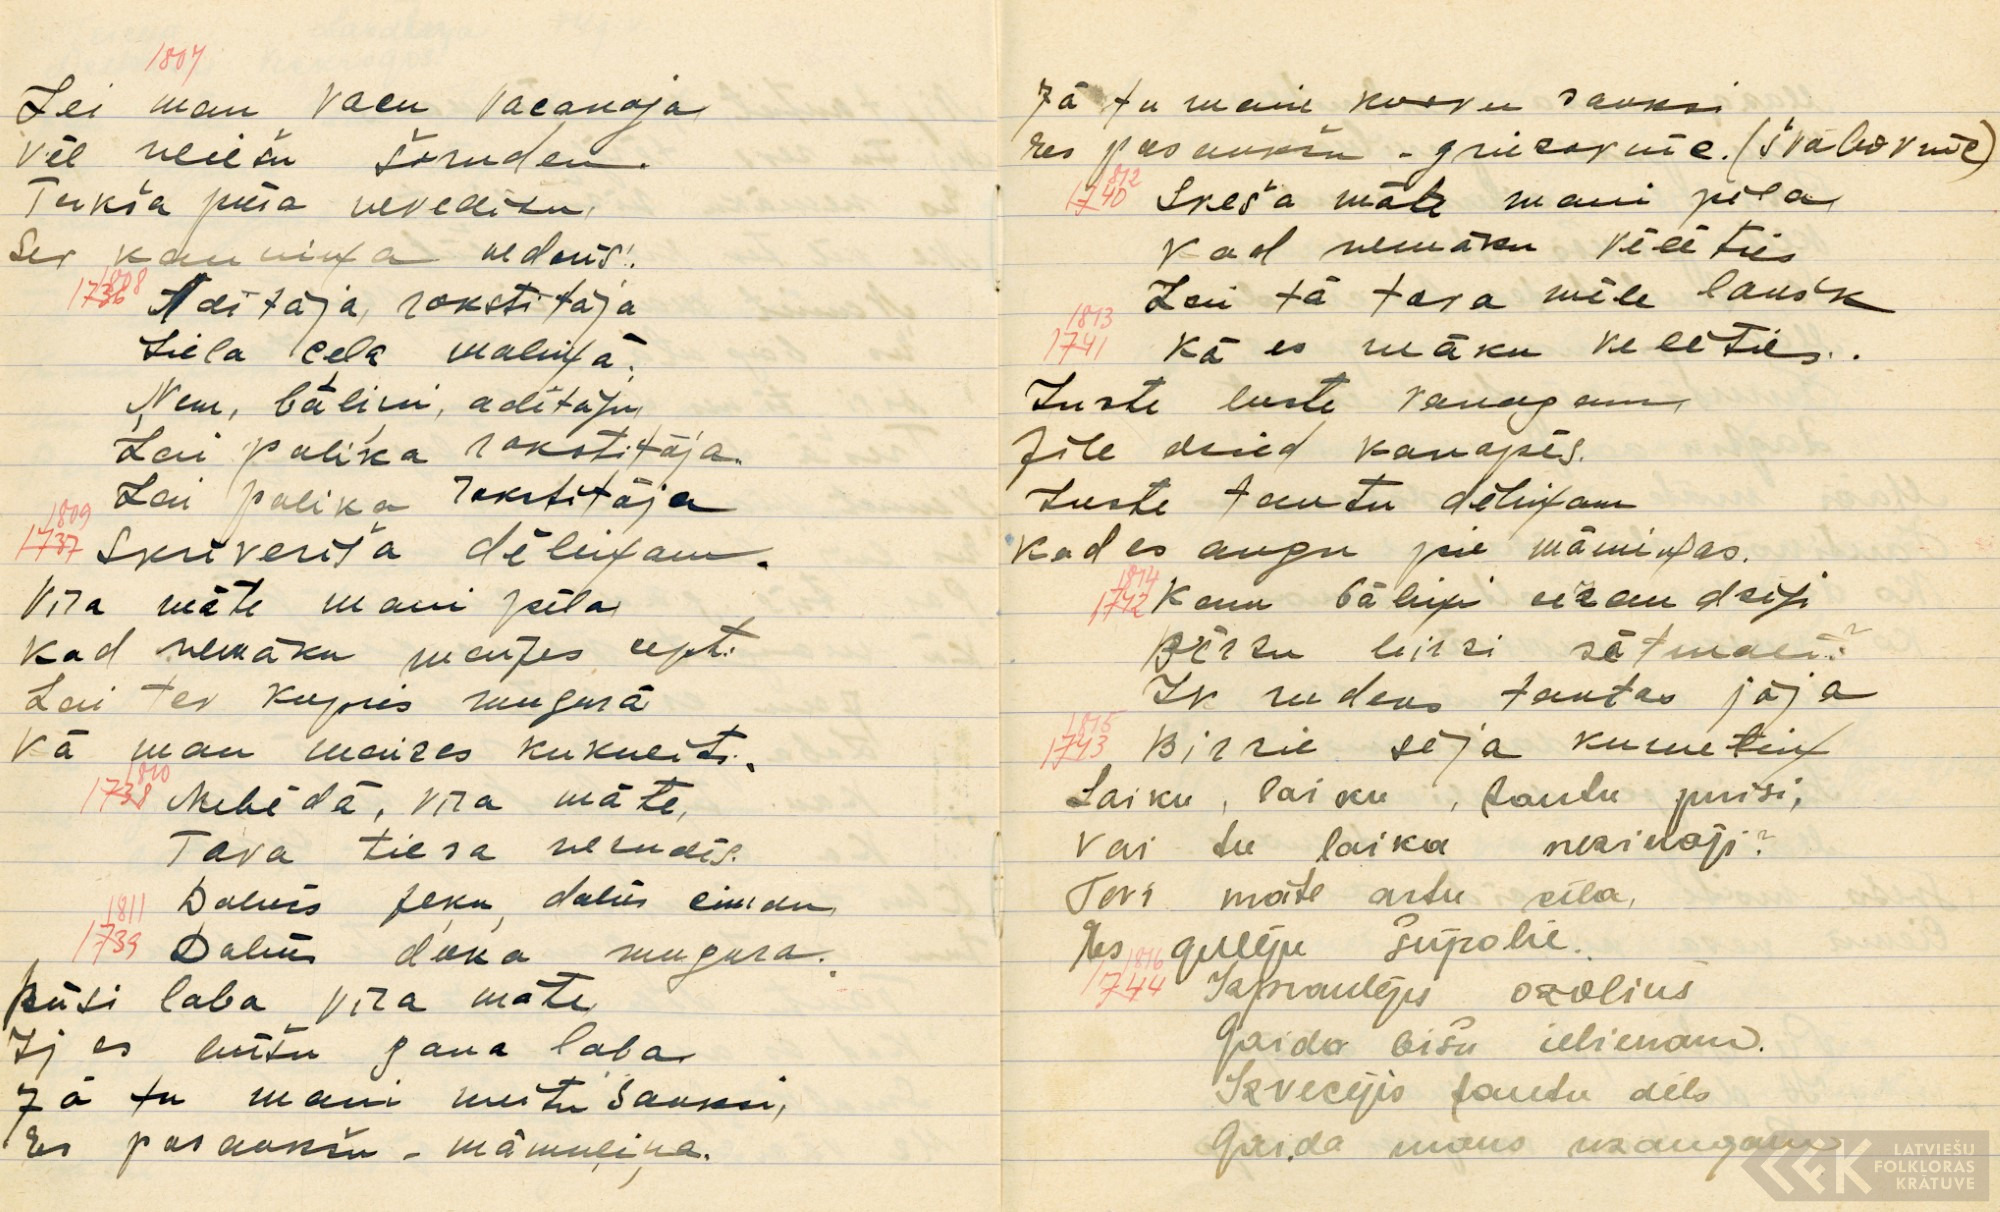 1807
Lei man vacu vacanāja,
Vēl neiešu šoruden.
Tukša pūra nevedīšu,
Ser kauniņa nedarīš.
1808
1736 Adītāja, rakstītāja
Liela ceļa maliņā.
Ņem, bāliņ, adītāju,
Lai palika rakstītāja.
Lai palika rakstītāja
1809
1737 Skrīverīša dēliņam.
Vīra māte mani pēla,
Kad nemāku maizes cept.
Lai tev kupris mugurā
Kā man maizes kukulīts.
1810
1738 Nebēdā, vīra māte,
Tava tiesa nerudīs.
Dabūs zeķu, dabūs cimdu,
1811
1739 Dabūs doka mugura.
Būsi laba vīra māte,
Ij es būšu gana laba
Jā tu mani meitu sauksi,
Es pasaukšu - māmuliņa.
Jā tu mani kuovu sauksi
Es pasaukšu - griezovnīc. (švabovnīc)
1812
1740 Sveša māte mani pēla,
Kad nemāku vēlēties
Lai tā tava mēle lauzīk
1813
1741 Kā es māku velēties.
Luste luste vanagam,
Zīle dzied kaņapēs.
Luste tautu dēliņam
Kad es augu pie māmiņas.
1814
1742 Kam bāliņi uzaudzēji
Bērzu birzi sētmalī?
Ik rudens tautas jāja
1815
1743 Birzie sēja kumeliņ
Laiku, laiku, tautu puisi,
Vai tu laika nezināji?
Tevi māte artu sēla,
Es gulēju šūpolie.
1816
1744 Izpraulējis ozoliņš
Gaida bišu ielienam.
Izvecējis tautu dēls
Gaida mans uzaugam
LATVIEŠU
FOLKLORAS
KRĀTUVE